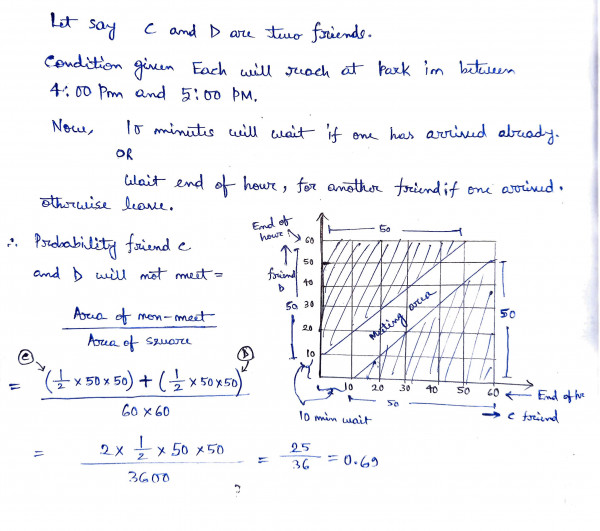 Let say C and D are two friends.
Condition given Each will reach at Park in between
4:00 Pm and 5:00 PM.
Now, 10 minutes will wait if one has arrived already.
OR
Wait end of hour, for another friend if one arrived.
otherwise leave.
∴ Probability friend C
and D will not meet =
Area of non-meet
Area of square
C D
= (1/2 × 50 × 50) + (1/2 × 50 × 50)
60 × 60
= 2 × 1/2 × 50 × 50 = 25/36 = 0.69
3600
?
End of
hour 60 50
50
friend 40
D
50 30
20
10
Meeting area
50
10 20 30 40 50 60 ← End of hr
50
10 min wait → C friend